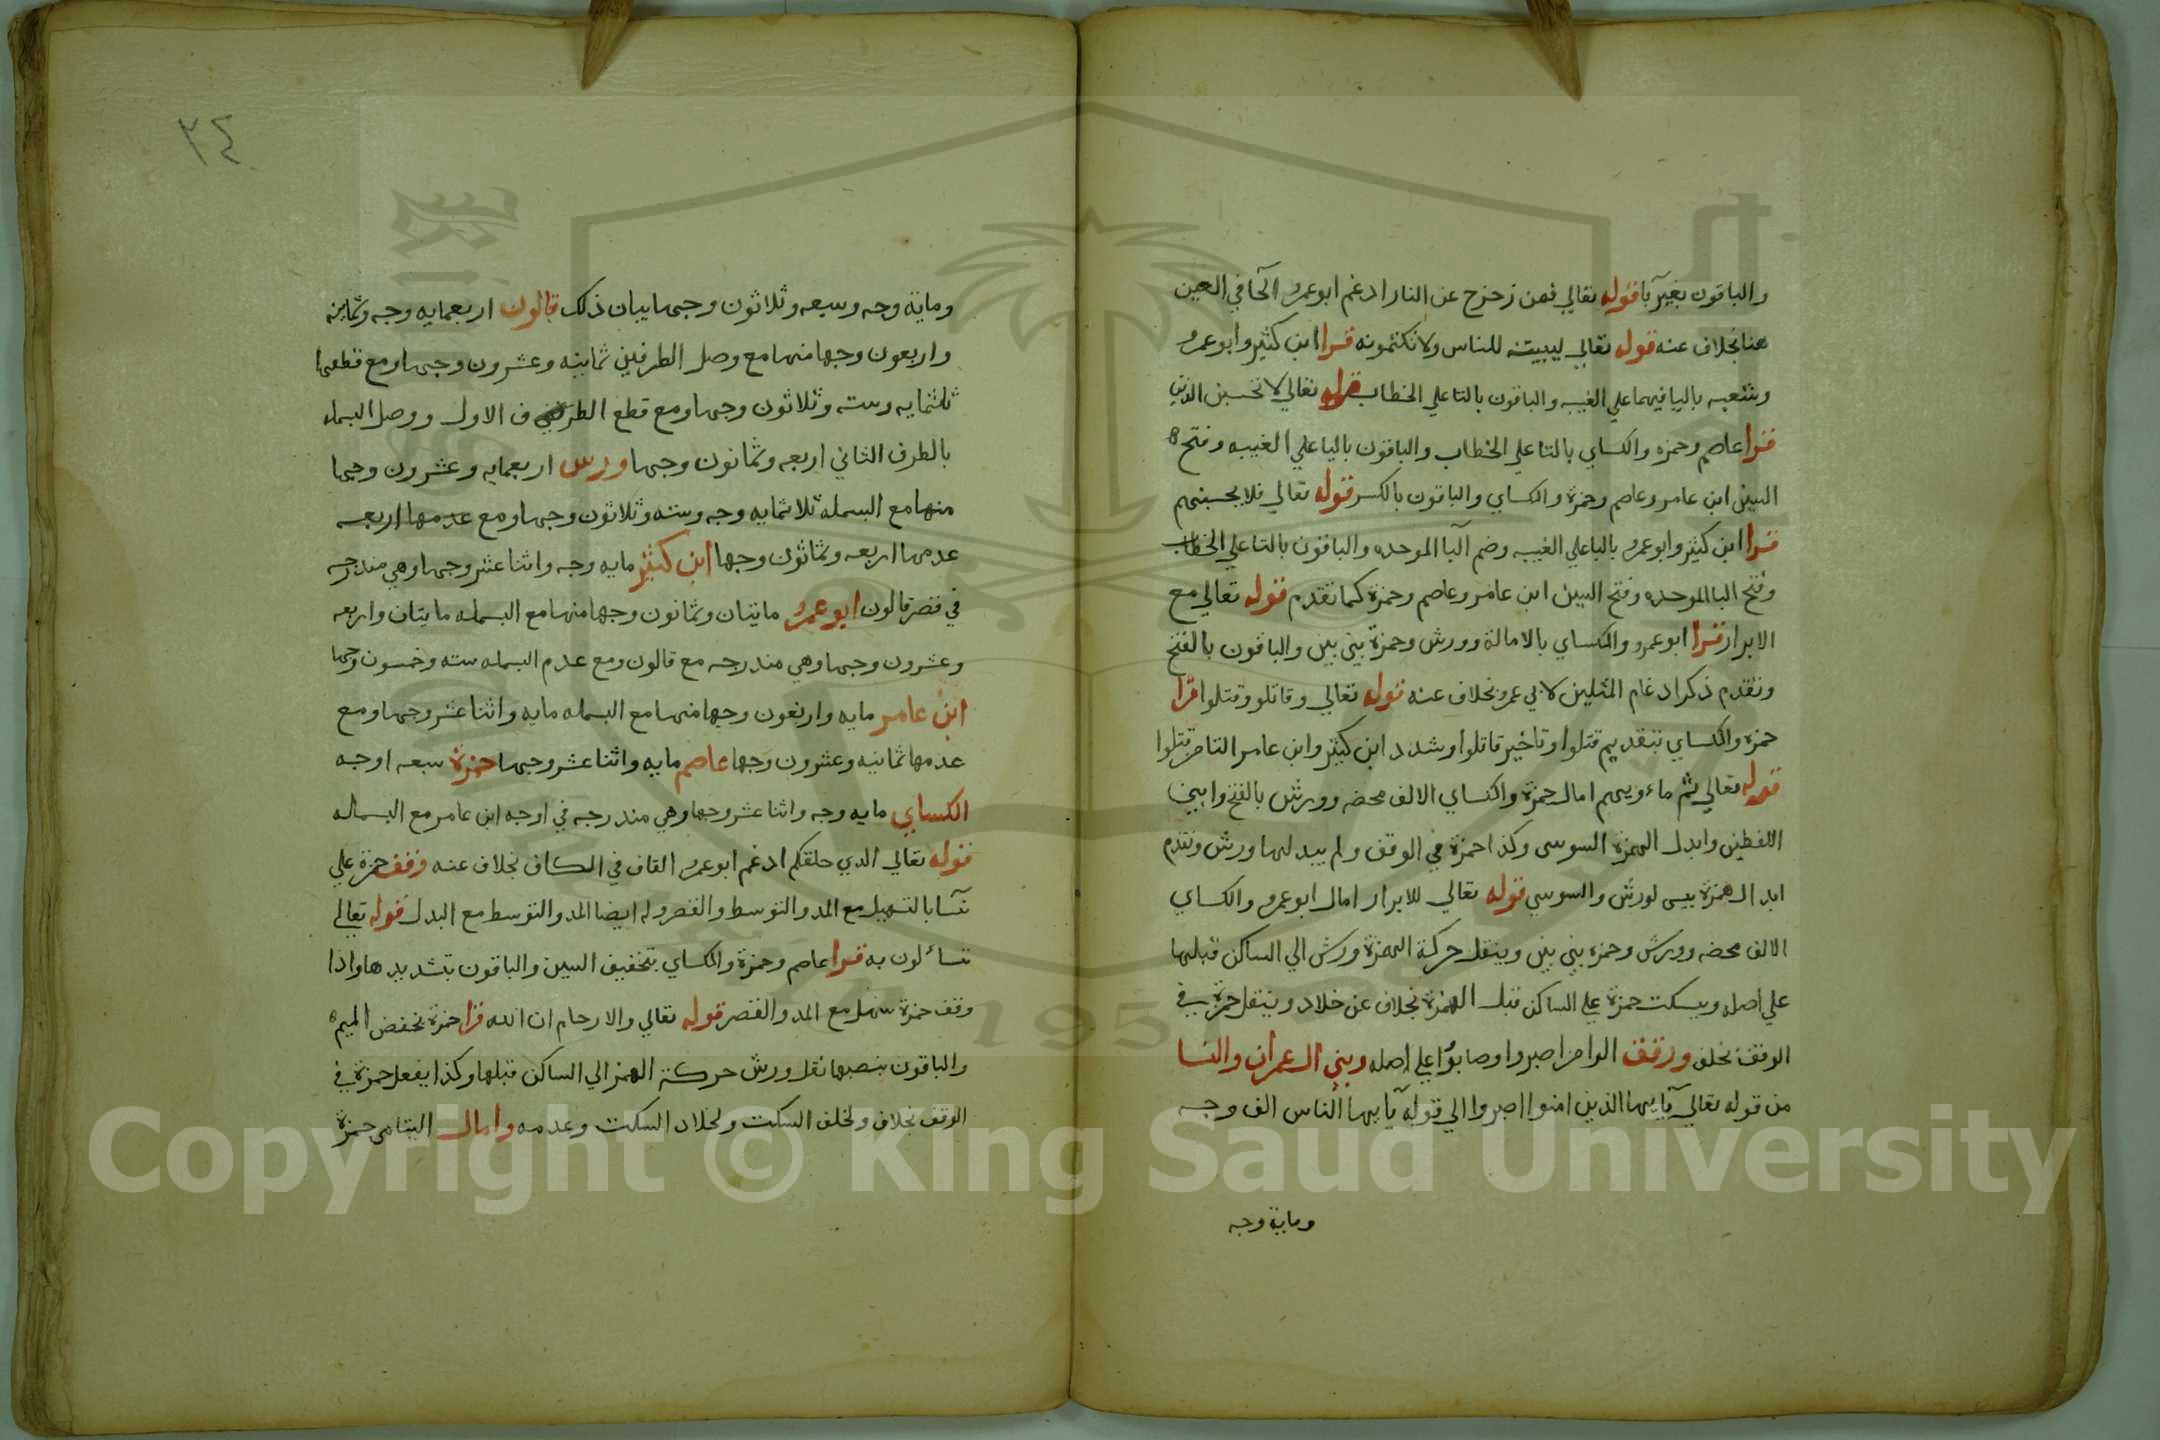 والباقون بغير با قوله تعالي فمن زحزح عن النار ادغم ابو عمرو الحا في العين
هنا بخلاف عنه قوله تعالي ليبيننه للناس ولا تكتمونه قرا ابن كثير وابو عمرو
وشعبه باليا فيهما علي الغيبه والباقون بالتا علي الخطاب قوله تعالي لا تحسبن الذين
قرا عاصم وحمزه والكساي بالتا علي الخطاب والباقون باليا علي الغيبه وفتح
السين ابن عامر وعاصم وحمزة والكساي والباقون بالكسر قوله تعالي فلا يحسبنهم
قرا ابن كثير وابو عمرو باليا علي الغيبه وضم البا الموحده والباقون بالتا علي الخطاب
وفتح البا الموحده وفتح السين ابن عامر وعاصم وحمزة كما تقدم قوله تعالي مع
الابرار قرا ابو عمرو والكساي بالامالة وورش وحمزة بين بين والباقون بالفتح
وتقدم ذكر ادغام المثلين لابي عمرو بخلاف عنه قوله تعالي وقاتلو وقتلوا قرا
حمزه والكساي بتقديم قتلوا وتاخير قاتلوا وشدد ابن كثير وابن عامر التا من قتلوا
قوله تعالي ثم ماءويهم امال حمزة والكساي الالف محضه وورش بالفتح وابين
اللفظين وابدل الهمزة السوسي وكذا حمزة في الوقف ولم يبدلها ورش وتقدم
ابدال همزة بيس لورش والسوسي قوله تعالي للابرار امال ابو عمرو والكساي
الالف محضه وورش وحمزه بين بين وينقل حركة الهمزة ورش الي الساكن قبلها
علي اصله ويسكت حمزة علي الساكن قبل الهمزة بخلاف عن خلاد وينقل حمزة في
الوقف بخلف ورقف الوا من اصبروا وصابروا علي اصله وبين ال عمران والنسا
من قوله تعالي يايها الذين امنوا اصبروا الي قوله يايها الناس الف وجه
وماية وجه
٣٤
وماية وجه وسبعه وثلاثون وجها بيان ذلك قالون اربعمايه وجه وثمانية
واربعون وجها منها مع وصل الطرفين ثمانيه وعشرون وجها ومع قطعها
ثلثمايه وسته وثلاثون وجها ومع قطع الطرف الاول ووصل البسمله
بالطرف الثاني اربعه وثمانون وجها ورش اربعمايه وعشرون وجها
منها مع البسملة ثلاثمايه وجه وسته وثلاثون وجها ومع عدمها اربعه
عدمها اربعه وثمانون وجها ابن كثير مايه وجه واثنا عشر وجها وهي مندرجه
في قصر قالون ابو عمرو مايتان وثمانون وجها منها مع البسمله مايتان واربعه
وعشرون وجها وهي مندرجه مع قالون ومع عدم البسمله سته وخمسون وجها
ابن عامر مايه واربعون وجها منها مع البسمله مايه واثنا عشر وجها ومع
عدمها ثمانيه وعشرون وجها عاصم مايه واثنا عشر وجها حمزة سبعه اوجه
الكساي مايه وجه واثنا عشر وجها وهي مندرجه في اوجه ابن عامر مع البسمله
قوله تعالي الذي خلقكم ادغم ابو عمرو القاف في الكاف بخلاف عنه وقف حمزة علي
نسآ بالتسهيل مع المد والتوسط والقصر وله ايضا المد والتوسط مع البدل قوله تعالي
تساءلون به قرا عاصم وحمزة والكساي بتخفيف السين والباقون بتشديدها واذا
وقف حمزة سهل مع المد والقصر قوله تعالي والارحام ان الله قرا حمزة بخفض الميم
والباقون بنصبها نقل ورش حركة الهمز الي الساكن قبلها وكذا يفعل حمزة في
الوقف بخلاف ولخلف السكت ولخلاد السكت وعدمه وامال اليتامي حمزة
Copyright © King Saud University